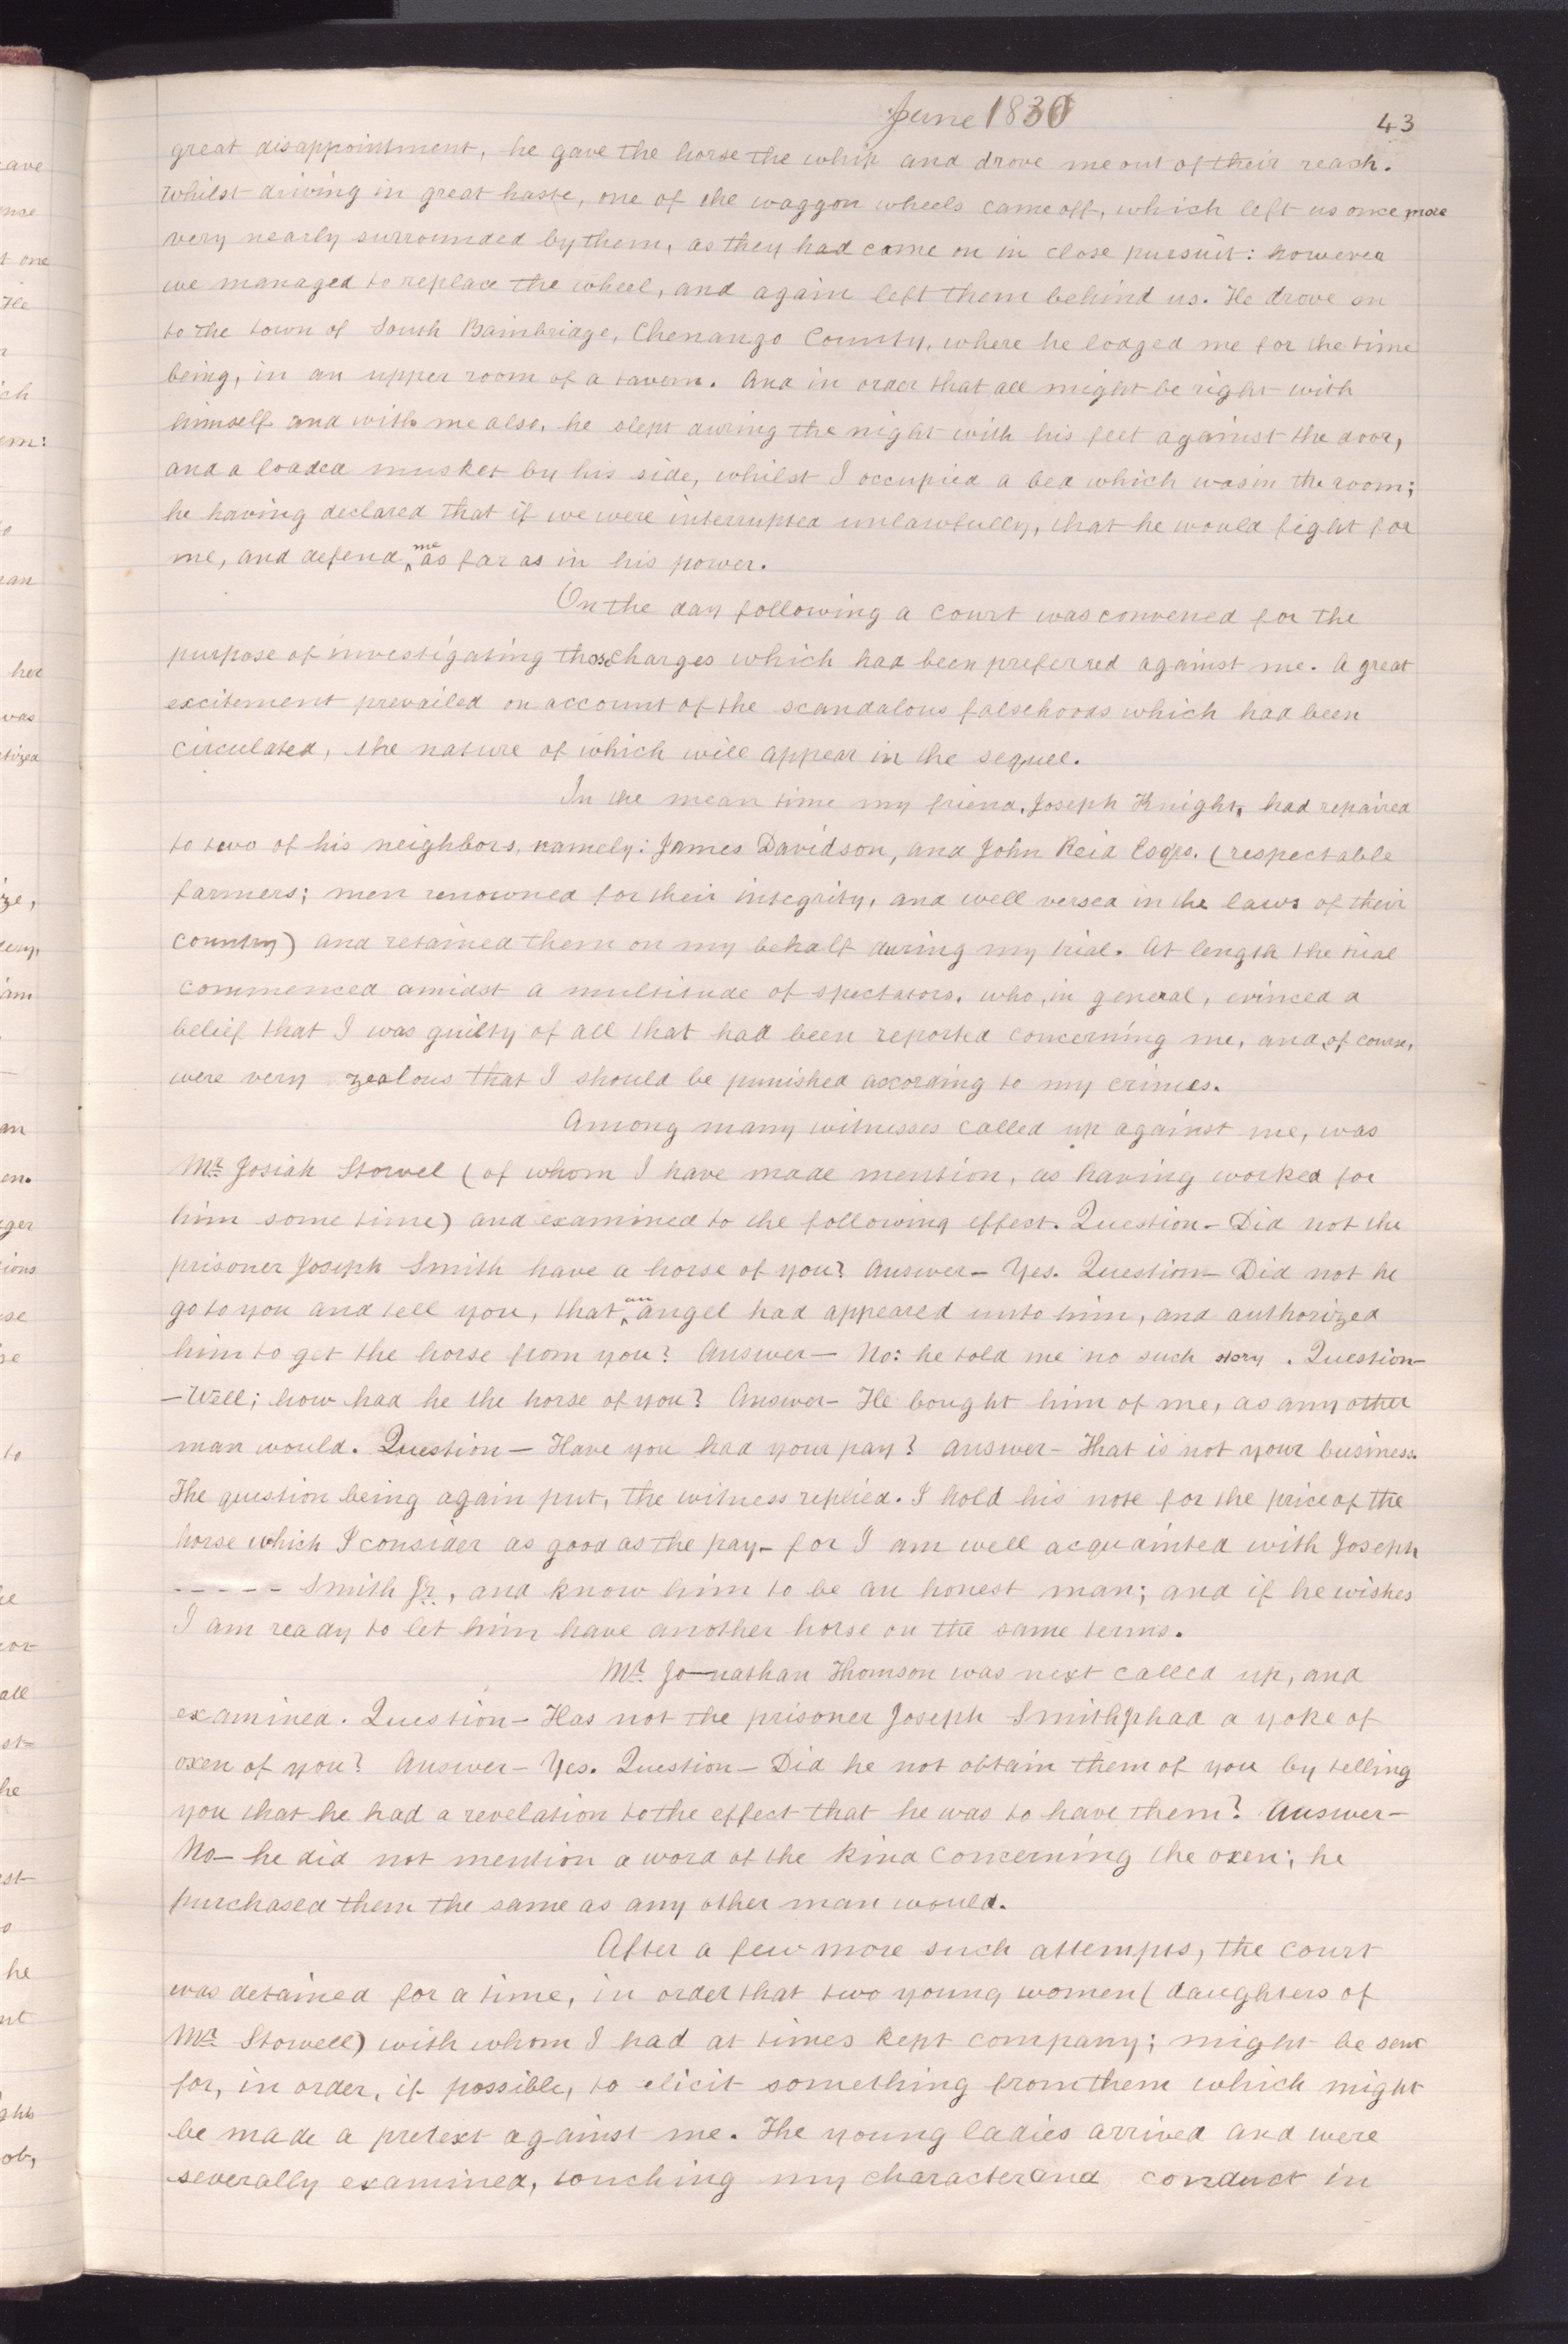 June 1830
43
great disappointment, he gave the horse the whip and drove me out of their reach.
Whilst driving in great haste, one of the waggon wheels came off, which left us once more
very nearly surrounded by them, as they had come on in close pursuit: however
we managed to replace the wheel, and again left them behind us. He drove on
to the town of South Bainbridge, Chenango County, where he lodged me for the time
being, in an upper room of a tavern. And in order that all might be right with
himself and with me also, he slept during the night with his feet against the door,
and a loaded musket by his side, whilst I occupied a bed which was in the room;
he having declared that if we were interrupted unlawfully, that he would fight for
me, and defend me as far as in his power.
On the day following a court was convened for the
purpose of investigating those charges which had been preferred against me. A great
excitement prevailed on account of the scandalous falsehoods which had been
circulated, the nature of which will appear in the sequel.
In the mean time my friend, Joseph Knight, had repaired
to two of his neighbors, namely: James Davidson, and John Reid Esqrs. (respectable
farmers; men renowned for their integrity, and well versed in the laws of their
country) and retained them on my behalf during my trial. At length the trial
commenced amidst a multitude of spectators, who, in general, evinced a
belief that I was guilty of all that had been reported concerning me, and, of course,
were very zealous that I should be punished according to my crimes.
Among many witnesses called up against me, was
Mr. Josiah Stowel (of whom I have made mention, as having worked for
him some time) and examined to the following effect. Question- Did not the
prisoner Joseph Smith have a horse of you? Answer- Yes. Question- Did not he
go to you and tell you, that an angel had appeared unto him, and authorized
him to get the horse from you? Answer- No: he told me no such story. Question-
-Well; how had he the horse of you? Answer- He bought him of me, as any other
man would. Question- Have you had your pay? Answer- That is not your business.
The question being again put, the witness replied. I hold his note for the price of the
horse which I consider as good as the pay- for I am well acquainted with Joseph
----- Smith Jr., and know him to be an honest man; and if he wishes
I am ready to let him have another horse on the same terms.
Mr. Jo-nathan Thomson was next called up, and
examined. Question- Has not the prisoner Joseph Smith Jr had a yoke of
oxen of you? Answer- Yes. Question- Did he not obtain them of you by telling
you that he had a revelation to the effect that he was to have them? Answer-
No- he did not mention a word of the kind concerning the oxen; he
purchased them the same as any other man would.
After a few more such attempts, the court
was detained for a time, in order that two young women (daughters of
Mr. Stowell) with whom I had at times kept company; might be sent
for, in order, if possible, to elicit something from them which might
be made a pretext against me. The young ladies arrived and were
severally examined, touching my character and conduct in